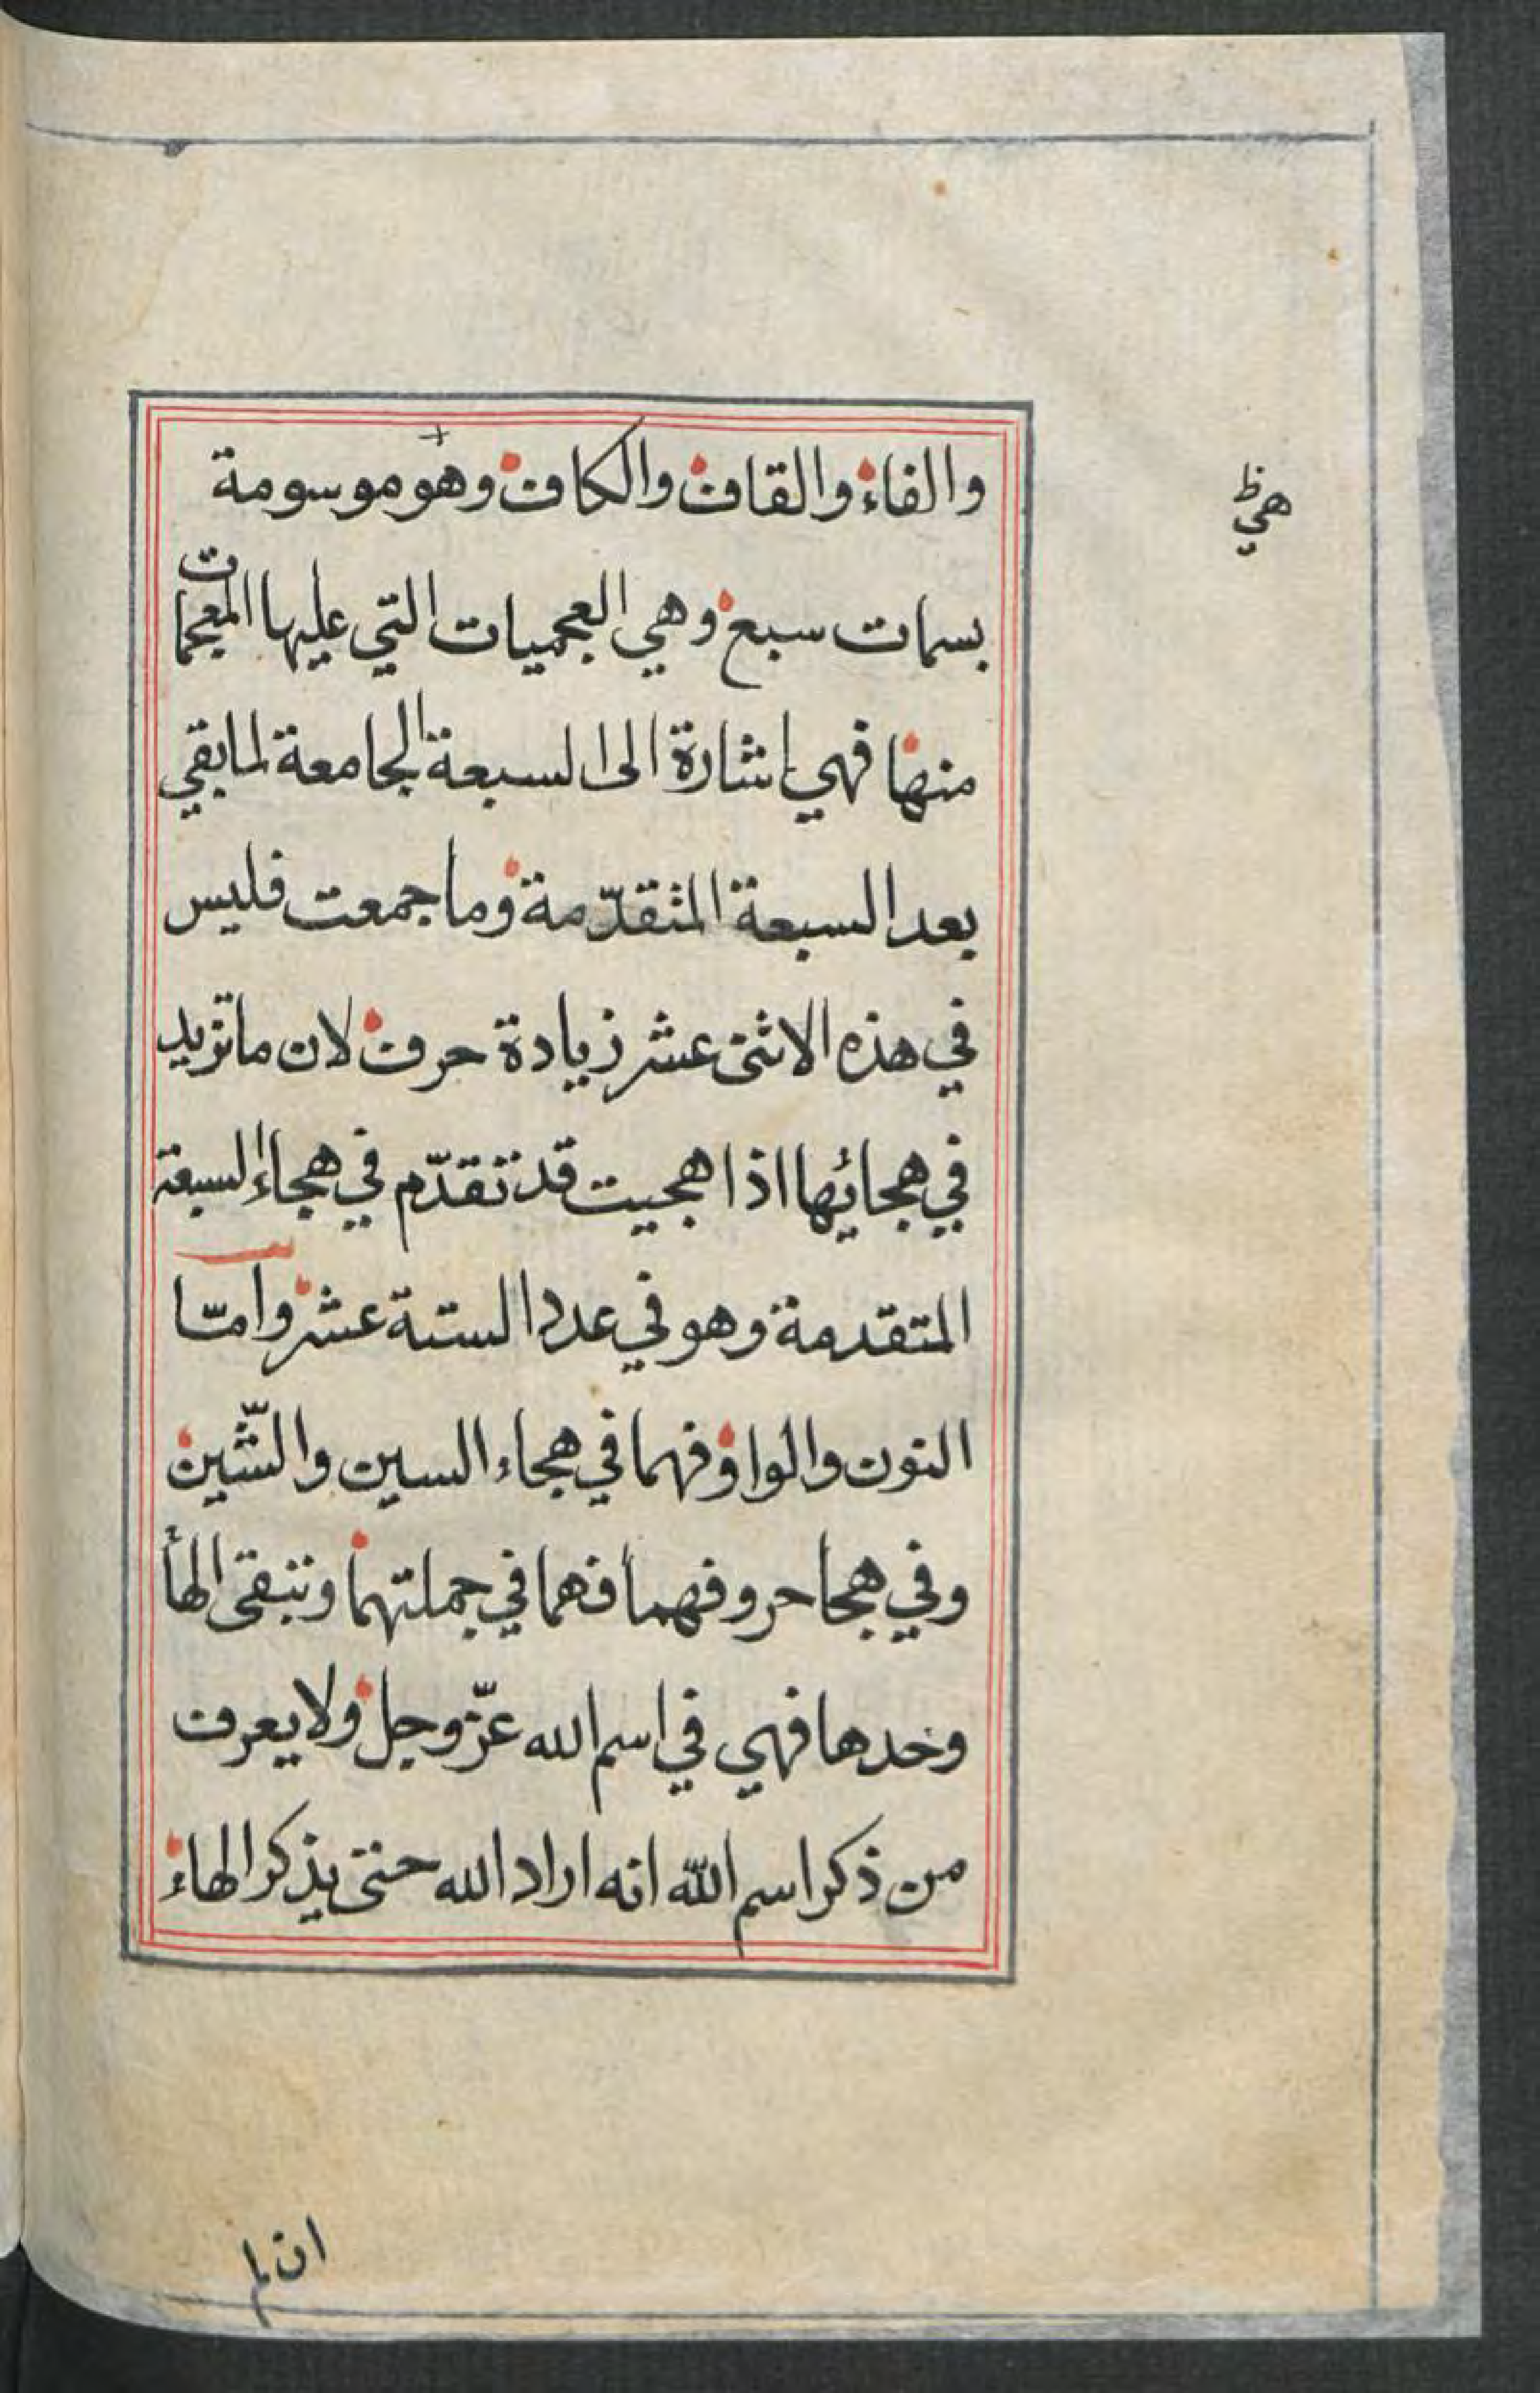 والفاء والقاف والكاف وهو موسومة
هي ظ
بسمات سبع وهي العجميات التي عليها المعجمات
منها فهي اشارة الى السبعة الجامعة لما بقي
بعد السبعة المتقدّمة وما جمعت فليس
في هذه الاثنى عشر زيادة حرف لان ما تزيد
في هجائها اذا هجيت قد تقدّم في هجاء السبعة
المتقدمة وهو في عدد الستة عشر وامّا
النون والواو فهما في هجاء السين والشّين
وفي هجا حروفهما فهما في جملتهما وتبقى الهأ
وحدها فهي في اسم الله عزّ وجل ولا يعرف
من ذكر اسم اللّه انه اراد الله حتى يذكر الهاء
ان لم